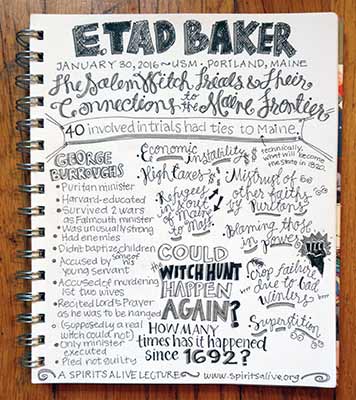 E. TAD BAKER
JANUARY 30, 2016 ~ USM - PORTLAND, MAINE
The Salem Witch Trials & Their
Connections to the Maine Frontier
40 involved in trials had ties to Maine
GEORGE
BURROUGHS
• Puritan minister
• Harvard-educated
• Survived 2 wars
as Falmouth minister
• Was unusually strong
• Had enemies
• Didn't baptize children
• Accused by some of his
young servant
• Accused of murdering
1st two wives
• Recited Lord's Prayer
as he was to be hanged
• (supposedly a real
witch could not)
• Only minister
executed
• Pled not guilty
Economic
instability
technically,
what will become
the state in 1820.
High taxes
Mistrust of
other faiths
by Puritans
Refugees
in & out
of Maine
to Mass
Blaming those
in power
COULD
the WITCH HUNT
HAPPEN
AGAIN?
HOW MANY
times has it happened
since 1692?
Crop failure
due to bad
winters
Superstition
~ A SPIRITS ALIVE LECTURE ~ www.spiritsalive.org ~